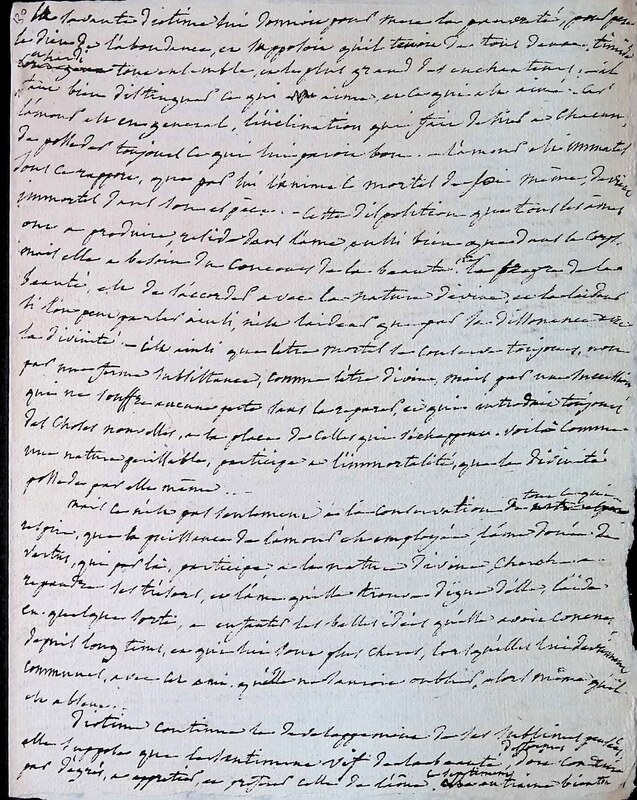 la savante diotime lui donnoit pour mere la pauvreté, pour pere
le dieu de l'abondance, et supposoit qu'il tenoit de tous deux. timide
et hardi tout ensemble, et le plus grand des enchanteurs. il
faut bien distinguer ce qui aime, et ce qui est aimé. car
l'amour est en general, l'inclination qui fait desirer a chacun,
de posseder toujours ce qui lui paroit bon. l'amour est immortel
sous ce rapport, que par lui l'animé mortel de soi même, devient
immortel dans son espece. cette disposition que tous les êtres
ont a produire, reside dans l'ame, aussi bien que dans le corps.
mais elle a besoin du concours de la beauté. le propre de la
beauté, est de s'accorder avec la nature divine, et la laideur
si l'on peut parler ainsi, n'est laideur que par sa dissonance avec
la divinité. c'est ainsi que l'être mortel se conserve toujours, non
par une forme subsistance, comme l'être divin, mais par une succession
qui ne souffre aucune perte sans la reparer, et qui introduit toujours
des choses nouvelles, a la place de celles qui s'échappent. voilà comme
une nature perissable, participe a l'immortalité, que la divinité
possede par elle même...
mais ce n'est pas seulement a la conservation de tout ce qui
respire, que la puissance de l'amour est employée. l'ame douée de
vertus, qui par là, participe a la nature divine, cherche a
repandre ses trésors, et l'ame qu'elle trouve digne d'elle, l'aide
en quelque sorte, a enfanter les belles idées qu'elle avoit conçues
depuis long tems, et qui lui sont plus cheres, lorsqu'elles lui deviennent
communes, avec cet ami qu'elle ne sauroit oublier, alors même qu'il
est absent...
diotime continue le developpement de ses sublimes pensées,
elle suppose que le sentiment vif de la beauté des formes, doit conduire
par degrés, a apprécier, et preferer celle de l'ame. ce sentiment entraine bientôt